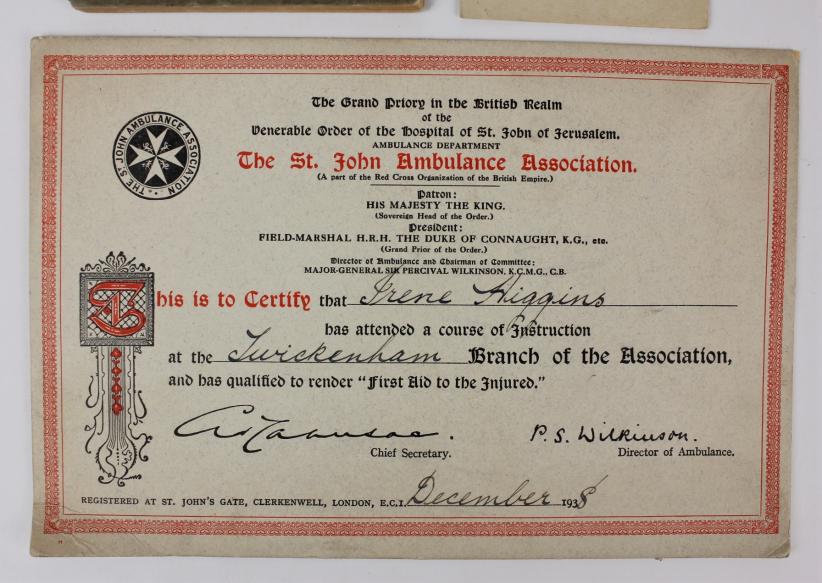 The Grand Priory in the British Realm
of the
Venerable Order of the Hospital of St. John of Jerusalem.
AMBULANCE DEPARTMENT
The St. John Ambulance Association.
(A part of the Red Cross Organization of the British Empire.)
THE ST. JOHN AMBULANCE ASSOCIATION
Patron:
HIS MAJESTY THE KING.
(Sovereign Head of the Order.)
President:
FIELD-MARSHAL H.R.H. THE DUKE OF CONNAUGHT, K.G., etc.
(Grand Prior of the Order.)
Director of Ambulance and Chairman of Committee:
MAJOR-GENERAL SIR PERCIVAL WILKINSON, K.C.M.G., C.B.
This is to Certify that Irene Higgins
has attended a course of Instruction
at the Twickenham Branch of the Association,
and has qualified to render "First Aid to the Injured."
P. S. Wilkinson.
Chief Secretary. Director of Ambulance.
REGISTERED AT ST. JOHN'S GATE, CLERKENWELL, LONDON, E.C.1. December 1938